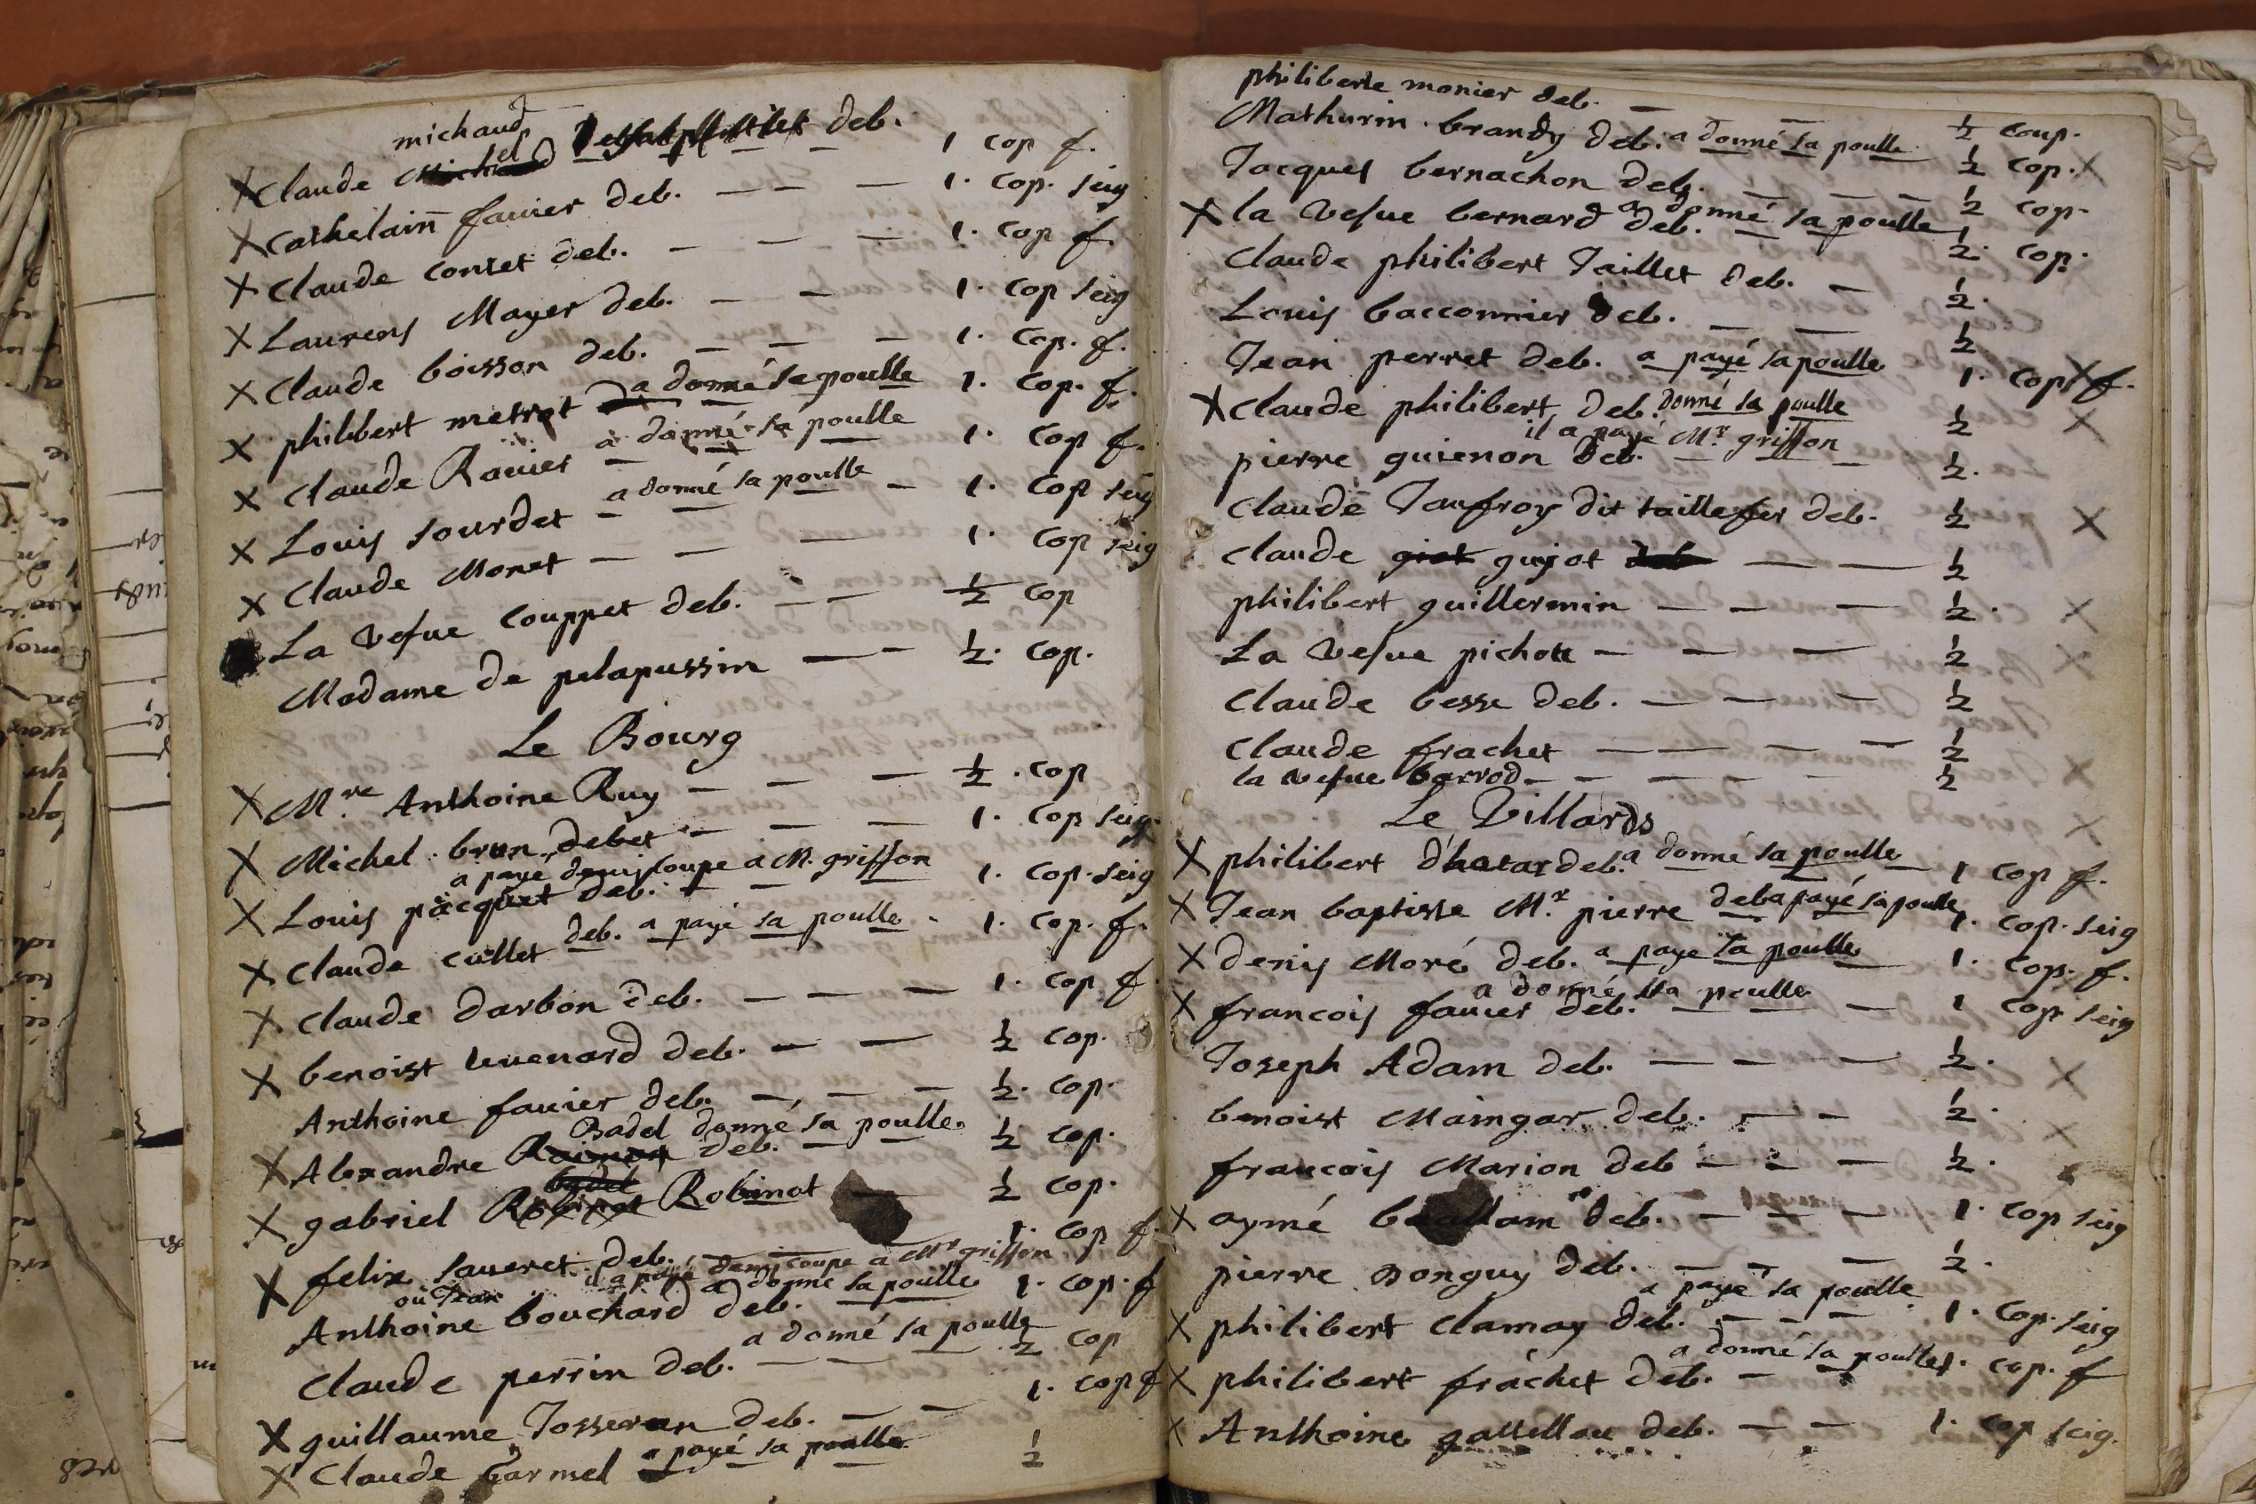 michaud
X Claude deb. 1 cop f.
X Cathelain fauier deb. — — — 1. cop. seig
X Claude contet deb. — — — 1. cop f.
X Laurens Mayer deb. — — 1. cop seig
X Claude boisson deb. — — — 1. cop. f.
X philibert metrat a donné sa poulle 1. cop. f.
X Claude Rauier a donné sa poulle 1. cop f.
X Louis sourdet — — a donné sa poulle — 1. cop seig
X Claude Monet — — — 1. cop seig
La vefue couppet deb. — — 1/2 cop
Madame de pelapussin — — 1/2. cop.
Le Bourg
X M.re Anthoine Ruy — — — 1/2. cop
X Michel brun debet — — — 1. cop seig.
a paye demy coupe a M. griffon
X Louis pacquet deb. — — 1. cop. seig
X Claude cullet deb. a payé sa poulle. 1. cop. f.
X Claude darbon deb. — — — 1. cop f.
X benoist uuenard deb. — — 1/2 cop.
Anthoine fauier deb. — — — 1/2. cop.
Badel donné sa poulle.
X Alexandre deb. — 1/2 cop.
X gabriel Robinot — 1/2 cop.
X felix saueret deb. — — 1. cop f.
il a payé demy coupe a Mr griffon
ou Jean a donné sa poulle
Anthoine bouchard deb. 1. cop. f
a donné sa poulle
Claude perrin deb. — — — 1/2 cop
X guillaume Josseran deb. — — 1. cop f
X Claude Carmel a payé sa poulle 1/2
philiberte monier deb. — — 1/2 coup.
Mathurin brandy deb. a donné sa poulle 1/2 cop. X
Jacques bernachon deb. — — — 1/2 cop.
X la vefue bernard deb. a donné sa poulle 1/2. cop.
Claude philibert Taillet deb. — 1/2.
Louis bacconnier deb. — — 1/2
Jean perret deb. a payé sa poulle 1. cop f. X
X Claude philibert deb. donné sa poulle 1/2 X
il a payé Mr griffon
pierre guienon deb. — — — 1/2.
Claude Jaufroy dit taillefer deb. 1/2 X
Claude giot guyot deb — — 1/2
philibert guillermin — — — 1/2. X
La vefue pichott — — — 1/2 X
Claude besse deb. — — — 1/2
Claude frachet — — — — 1/2
la vefue barrod — — — — — 1/2
Le Villards
X philibert d'hatar deb. a donné sa poulle 1 cop f.
X Jean baptiste M.r pierre deb a payé sa poulle 1. cop. seig
X denis Moré deb. a paye sa poulle 1. cop. f.
a donné sa poulle
X francois fauier deb. — — — 1 cop seig
Joseph Adam deb. — — — 1/2. X
benoist Maingar deb. — — 1/2. X
francois Marion deb — — — 1/2.
X aymé deb. — — — 1. cop seig
pierre Bonguy deb. — — — 1/2.
a payé sa poulle
X philibert Clamay deb. — — — 1. cop. seig
a donné sa poulle
X philibert frachet deb. — — 1. cop. f
X Anthoine gattellau deb. — — 1. cop seig.